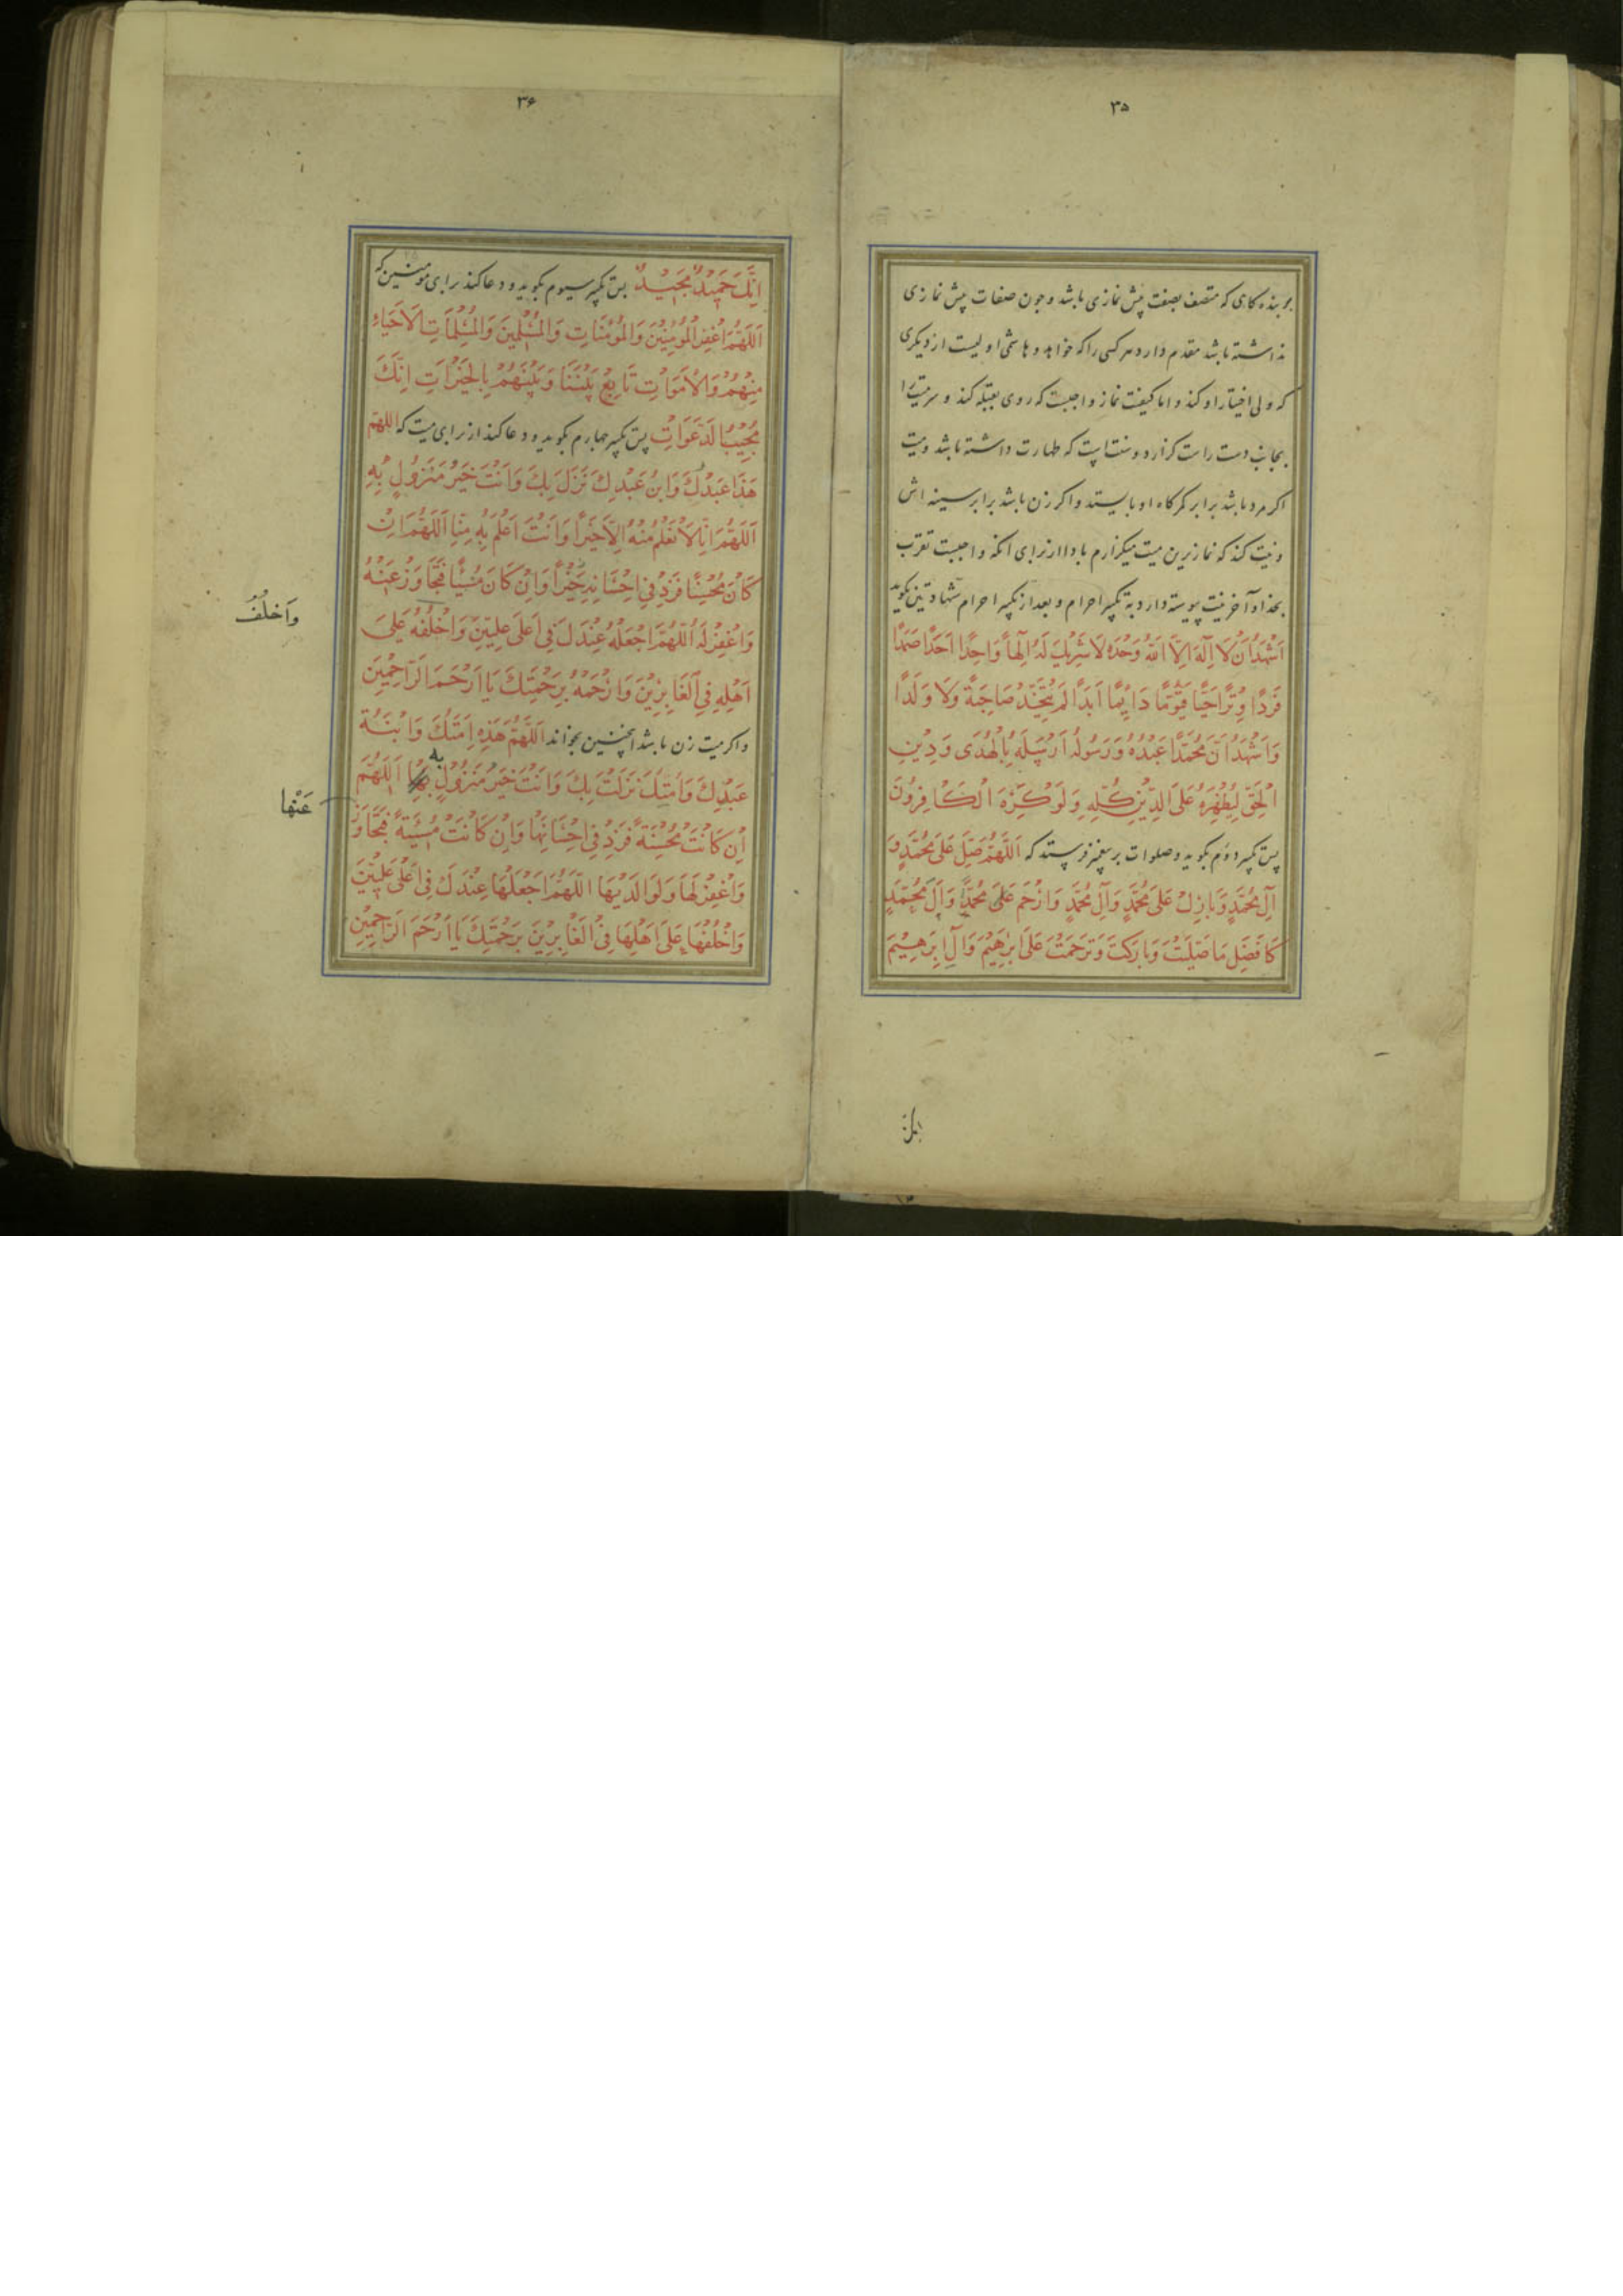 ۳۵
بر بنده کاری که متصف بصفت پیش نمازی باشد و چون صفات پیش نمازی
نداشته باشد مقدم دارد هر کسی را که خواهد و هاشمی اولیست از دیگری
که ولی اختیار او کند و اما کیفیت نماز واجبست که روی بقبله کند و سر میت را
بجانب دست راست گزارد و سنتست که طهارت داشته باشد و میت
اگر مرد باشد برابر کمرگاه او بایستد و اگر زن باشد برابر سینه اش
و نیت کند که نماز برین میت میگزارم بادا از برای آنکه واجبست تقرب
بخدا و آخر نیت پیوسته دارد به تکبیر احرام و بعد از تکبیر احرام شهادتین بگوید
اَشْهَدُ اَنْ لَا اِلٰهَ اِلَّا اللهُ وَحْدَهُ لَا شَرِیكَ لَهُ اِلٰهاً وَاحِدًا اَحَدًا صَمَدًا
فَرْدًا وِتْرًا حَیًّا قَیُّومًا دَائِمًا اَبَدًا لَمْ یَتَّخِذْ صَاحِبَةً وَلَا وَلَدًا
وَاَشْهَدُ اَنَّ مُحَمَّدًا عَبْدُهُ وَرَسُولُهُ اَرْسَلَهُ بِالْهُدَی وَدِیْنِ
الْحَقِّ لِیُظْهِرَهُ عَلَی الدِّیْنِ كُلِّهِ وَلَوْ كَرِهَ الْكَافِرُونَ
پس تکبیر دوم بگوید و صلوات بر پیغمبر فرستد که اَللّهُمَّ صَلِّ عَلَی مُحَمَّدٍ وَ
آلِ مُحَمَّدٍ وَبَارِكْ عَلَی مُحَمَّدٍ وَآلِ مُحَمَّدٍ وَارْحَمْ عَلَی مُحَمَّدٍ وَآلِ مُحَمَّدٍ
كَافْضَلِ مَا صَلَّیْتَ وَبَارَكْتَ وَتَرَحَّمْتَ عَلَی اِبْرٰهِیْمَ وَآلِ اِبْرٰهِیْمَ
۳۶
اِنَّكَ حَمِیْدٌ مَجِیْدٌ پس تکبیر سیوم بگوید و دعا کند برای مومنین که
اَللّهُمَّ اغْفِرْ لِلْمُؤْمِنِیْنَ وَالْمُؤْمِنَاتِ وَالْمُسْلِمِیْنَ وَالْمُسْلِمَاتِ الْاَحْیَاءِ
مِنْهُمْ وَالْاَمْوَاتِ تَابِعْ بَیْنَنَا وَبَیْنَهُمْ بِالْخَیْرَاتِ اِنَّكَ
مُجِیْبُ الدَّعَوَاتِ پس تکبیر چهارم بگوید و دعا کند از برای میت که اللهم
هَذَا عَبْدُكَ وَابْنُ عَبْدِكَ نَزَلَ بِكَ وَاَنْتَ خَیْرُ مَنْزُولٍ بِهِ
اَللّهُمَّ اِنَّا لَا نَعْلَمُ مِنْهُ اِلَّا خَیْرًا وَاَنْتَ اَعْلَمُ بِهِ مِنَّا اَللّهُمَّ اِنْ
كَانَ مُحْسِنًا فَزِدْ فِی اِحْسَانِهِ خَیْرًا وَاِنْ كَانَ مُسِیْئًا فَتَجَاوَزْ عَنْهُ
وَاغْفِرْ لَهُ اللّهُمَّ اجْعَلْهُ عِنْدَكَ فِی اَعْلَی عِلِّیِّیْنَ وَاخْلُفْهُ عَلَی
وَاَخْلُفْ
اَهْلِهِ فِی الْغَابِرِیْنَ وَارْحَمْهُ بِرَحْمَتِكَ یَا اَرْحَمَ الرَّاحِمِیْنَ
و اگر میت زن باشد اینچنین بخواند اَللّهُمَّ هَذِهِ اَمَتُكَ وَابْنَةُ
عَبْدِكَ وَاَمَتِكَ نَزَلَتْ بِكَ وَاَنْتَ خَیْرُ مَنْزُولٍ بِهِ اَللّهُمَّ
اِنْ كَانَتْ مُحْسِنَةً فَزِدْ فِی اِحْسَانِهَا وَاِنْ كَانَتْ مُسِیْئَةً فَتَجَاوَزْ
عَنْهَا
وَاغْفِرْ لَهَا وَلِوَالِدَیْهَا اللّهُمَّ اجْعَلْهَا عِنْدَكَ فِی اَعْلَی عِلِّیِّیْنَ
وَاخْلُفْهَا عَلَی اَهْلِهَا فِی الْغَابِرِیْنَ بِرَحْمَتِكَ یَا اَرْحَمَ الرَّاحِمِیْنَ